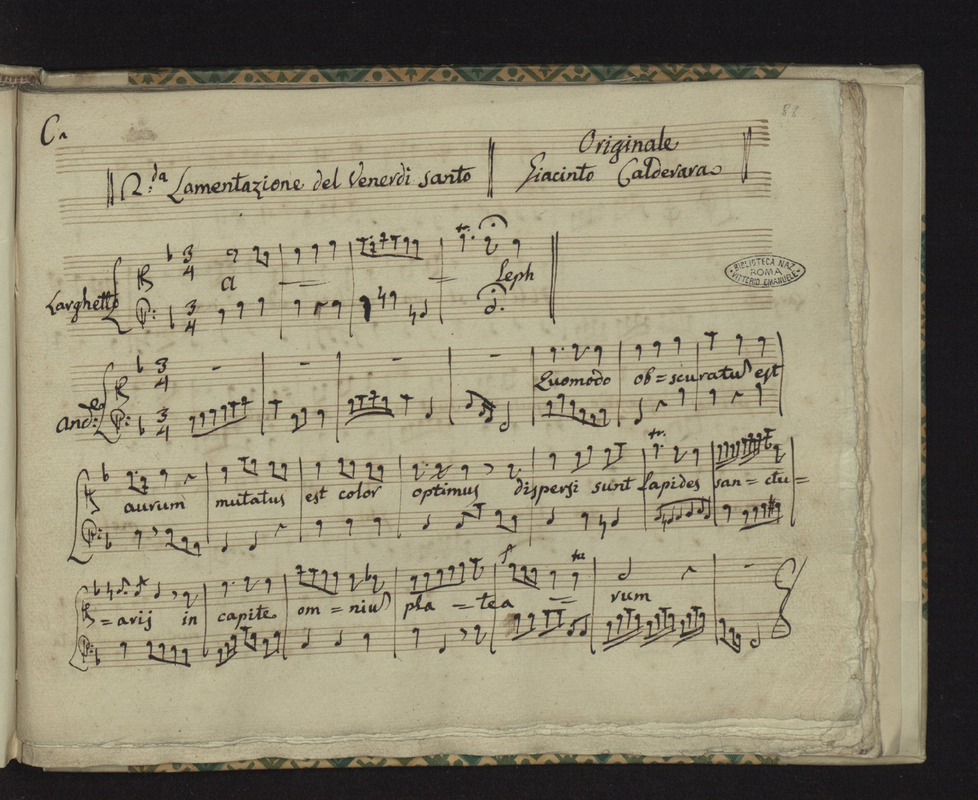 C.
81
Originale
2.da Lamentazione del Venerdi santo Giacinto Calderara
BIBLIOTECA NAZ.
ROMA
VITTORIO EMANUELE
Larghetto A = = Leph
And.e Quomodo ob=scuratu est
aurum mutatus est color optimus dispersi sunt lapides san=ctu=
=arij in capite om=niu pla=tea = rum